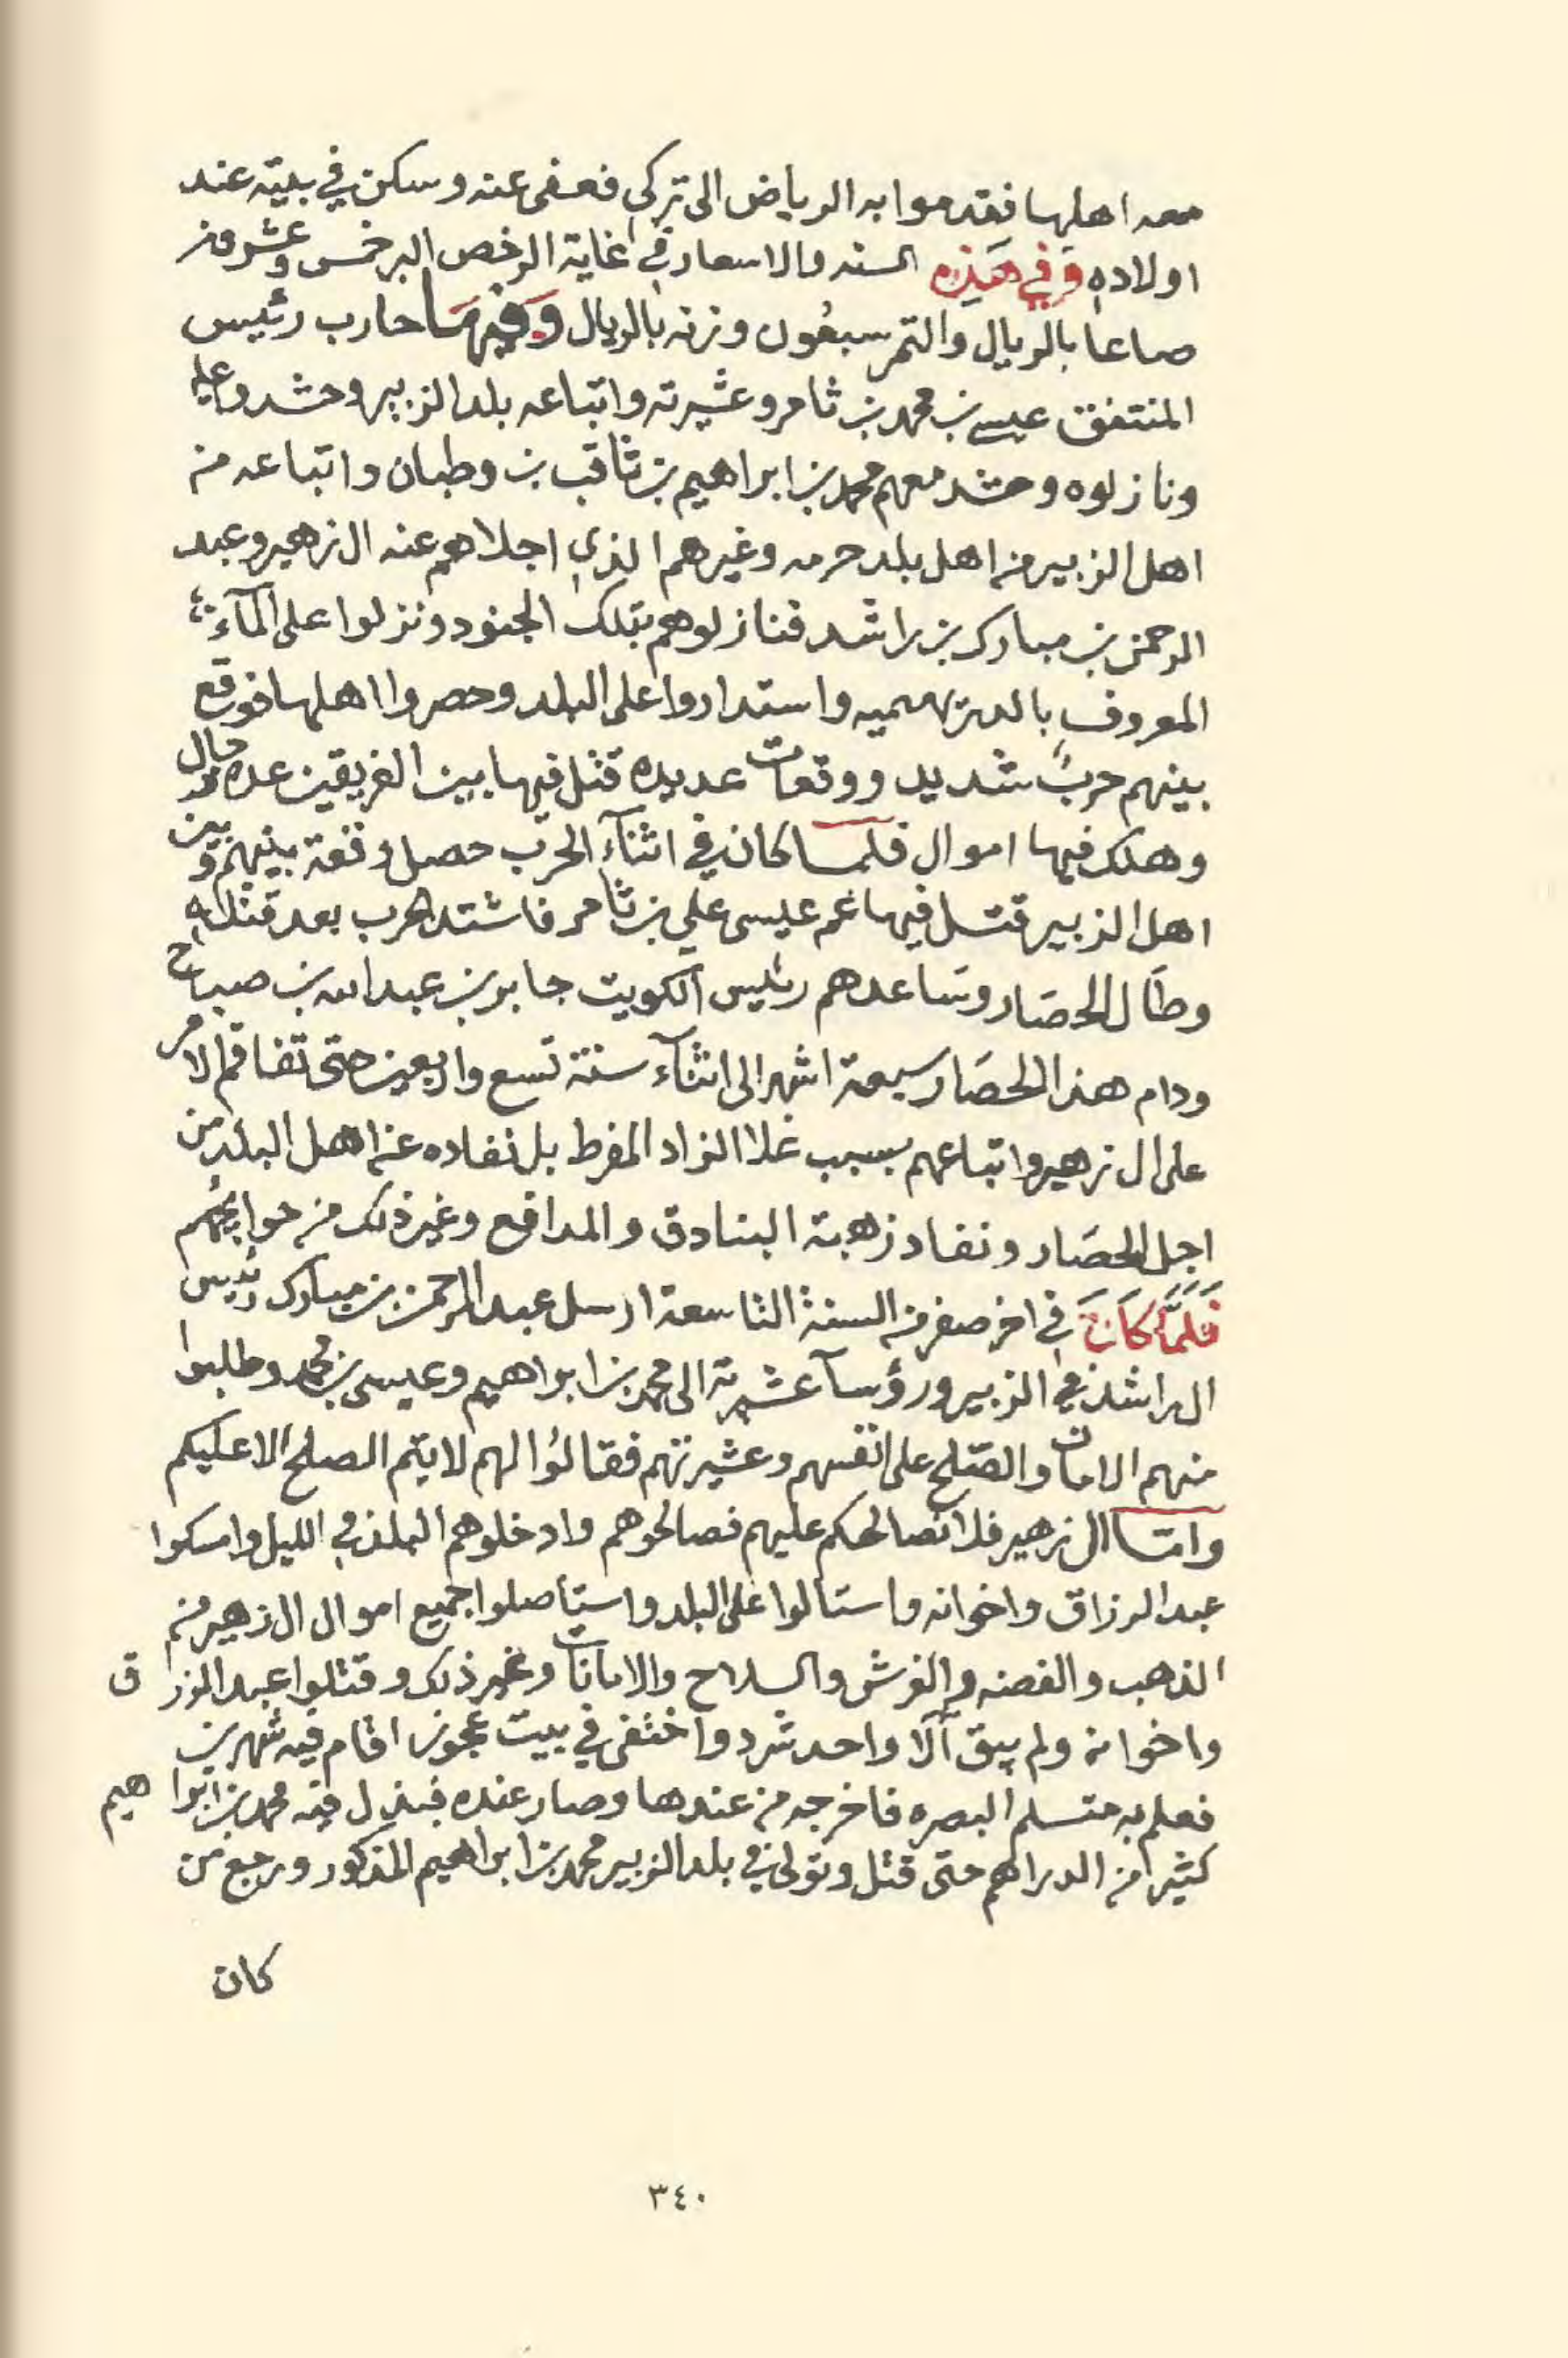 معه اهلها فقدموا به الرياض الى تركي فعفى عنه وسكن في بيته عند
اولاده وفي هذه السنه والاسعار في غاية الرخص البر خمس وعشرون
صاعا بالريال والتمر سبعون وزنه بالريال وفيها حارب رئيس
المنتفق عيسى بن محمد بن ثامر وعشيرته واتباعه بلد الزبير وحشدوا عليه
ونازلوه وحشد معهم محمد بن ابراهيم بن ثاقب بن وطبان واتباعه من
اهل الزبير من اهل بلد حرمه وغيرهم الذي اجلاهم عنه ال زهير وعبد
الرحمن بن مبارك بن راشد فنازلوهم بتلك الجنود ونزلوا على المآء
المعروف بالدريهميه واستداروا على البلد وحصروا اهلها فوقع
بينهم حربٌ شديد ووقعات عديده قتل فيها بين الفريقين عدة رجال
وهلك فيها اموال فلما كان في اثنآء الحرب حصل وقعة بينهم وبين
اهل الزبير قتل فيها عم عيسى علي بن ثامر فاشتد الحرب بعد قتله
وطال الحصار وساعدهم رئيس الكويت جابر بن عبدالله بن صباح
ودام هذا الحصار سبعة اشهر الى اثنآء سنة تسع واربعين حتى تفاقم الامر
على ال زهير واتباعهم بسبب غلا الزاد المفرط بل نفاده عن اهل البلد من
اجل الحصار ونفاد زهبة البنادق والمدافع وغير ذلك من حوايجهم
فَلَمَّا كَانَ في اخر صفر من السنة التاسعة ارسل عبد الرحمن بن مبارك رئيس
ال راشد في الزبير ورؤسآ عشيرته الى محمد بن ابراهيم وعيسى بن محمد وطلبوا
منهم الامان والصّلح على انفسهم وعشيرتهم فقالوا لهم لا يتم الصلح الا عليكم
واما ال زهير فلا نصالحكم عليهم فصالحوهم وادخلوهم البلد في الليل وامسكوا
عبدالرزاق واخوانه واستالوا على البلد واستأصلوا جميع اموال ال زهير من
الذهب والفضه والفرش والسلاح والامانات وغير ذلك وقتلوا عبد الرزاق
واخوانه ولم يبق الا واحد شرد واختفى في بيت عجوز اقام فيه شهرين
فعلم به متسلم البصره فاخرجه من عندها وصار عنده فبذل فيه محمد بن ابراهيم
كثيرا من الدراهم حتى قتل وتولى في بلد الزبير محمد بن ابراهيم المذكور ورجع من
كان
٣٤٠